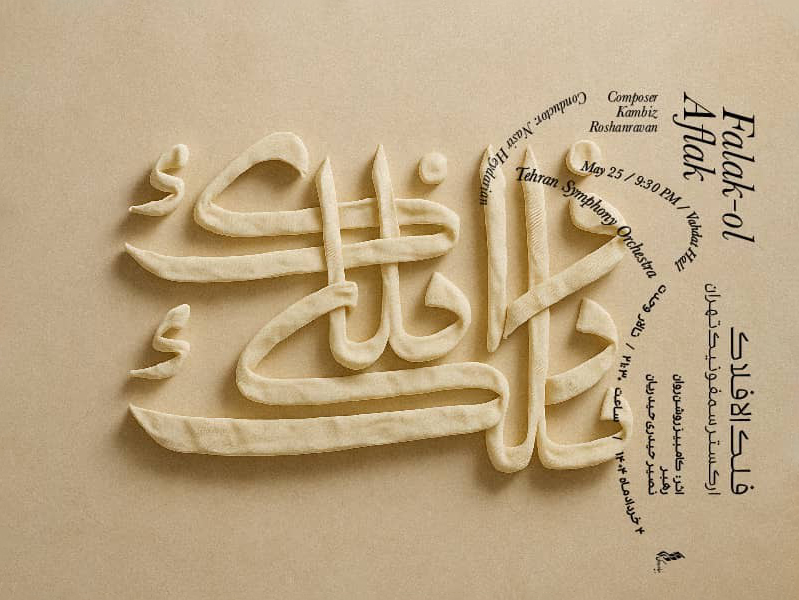 Falak-ol
Aflak
Composer
Kambiz
Roshanravan
Conductor: Nasir Heydarian
Tehran Symphony Orchestra
May 25 / 9:30 PM / Vahdat Hall
فلک الافلاک
فلک الافلاک
ارکستر سمفونیک تهران
اثر: کامبیز روشن‌روان
رهبر
نصیر حیدریان
۴ خردادماه ۱۴۰۴ / ساعت ۲۱:۳۰ / تالار وحدت